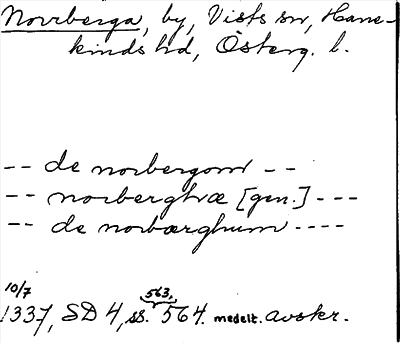 Norrberga, by, Vists sn, Hane-
kinds hd, Österg. l.
-- de norbergom --
-- norberghræ [gen.] ---
-- de norbærghum ----
10/7
563,
1337, SD 4, ss. 564. medelt. avskr.